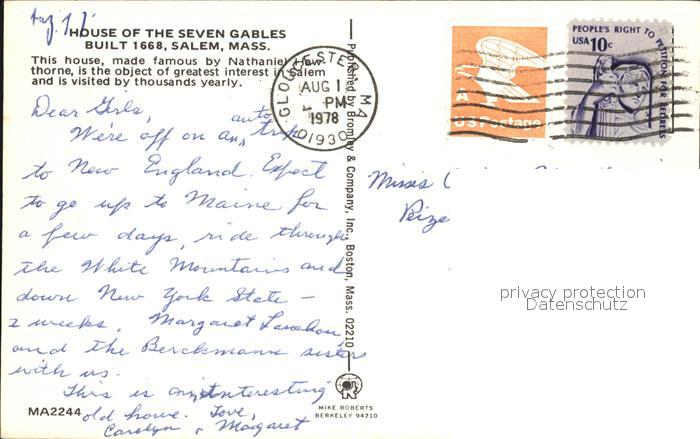 Aug. 1,
HOUSE OF THE SEVEN GABLES
BUILT 1668, SALEM, MASS.
This house, made famous by Nathaniel Haw-
thorne, is the object of greatest interest in Salem
and is visited by thousands yearly.
Dear Girls,
We're off on an auto trip
to New England. Expect
to go up to Maine for
a few days, ride through
the White Mountains and
down New York State –
2 weeks. Margaret
and the Berckmann sisters
with us.
This is an interesting
old house. Love,
Carolyn & Margaret
MA2244
Published by Bromley & Company, Inc., Boston, Mass. 02210
MIKE ROBERTS
BERKELEY 94710
GLOUCESTER, MA
AUG 1
PM
1978
01930
A
US Postage
PEOPLE'S RIGHT TO PETITION FOR REDRESS
USA 10c
Misses
privacy protection
Datenschutz